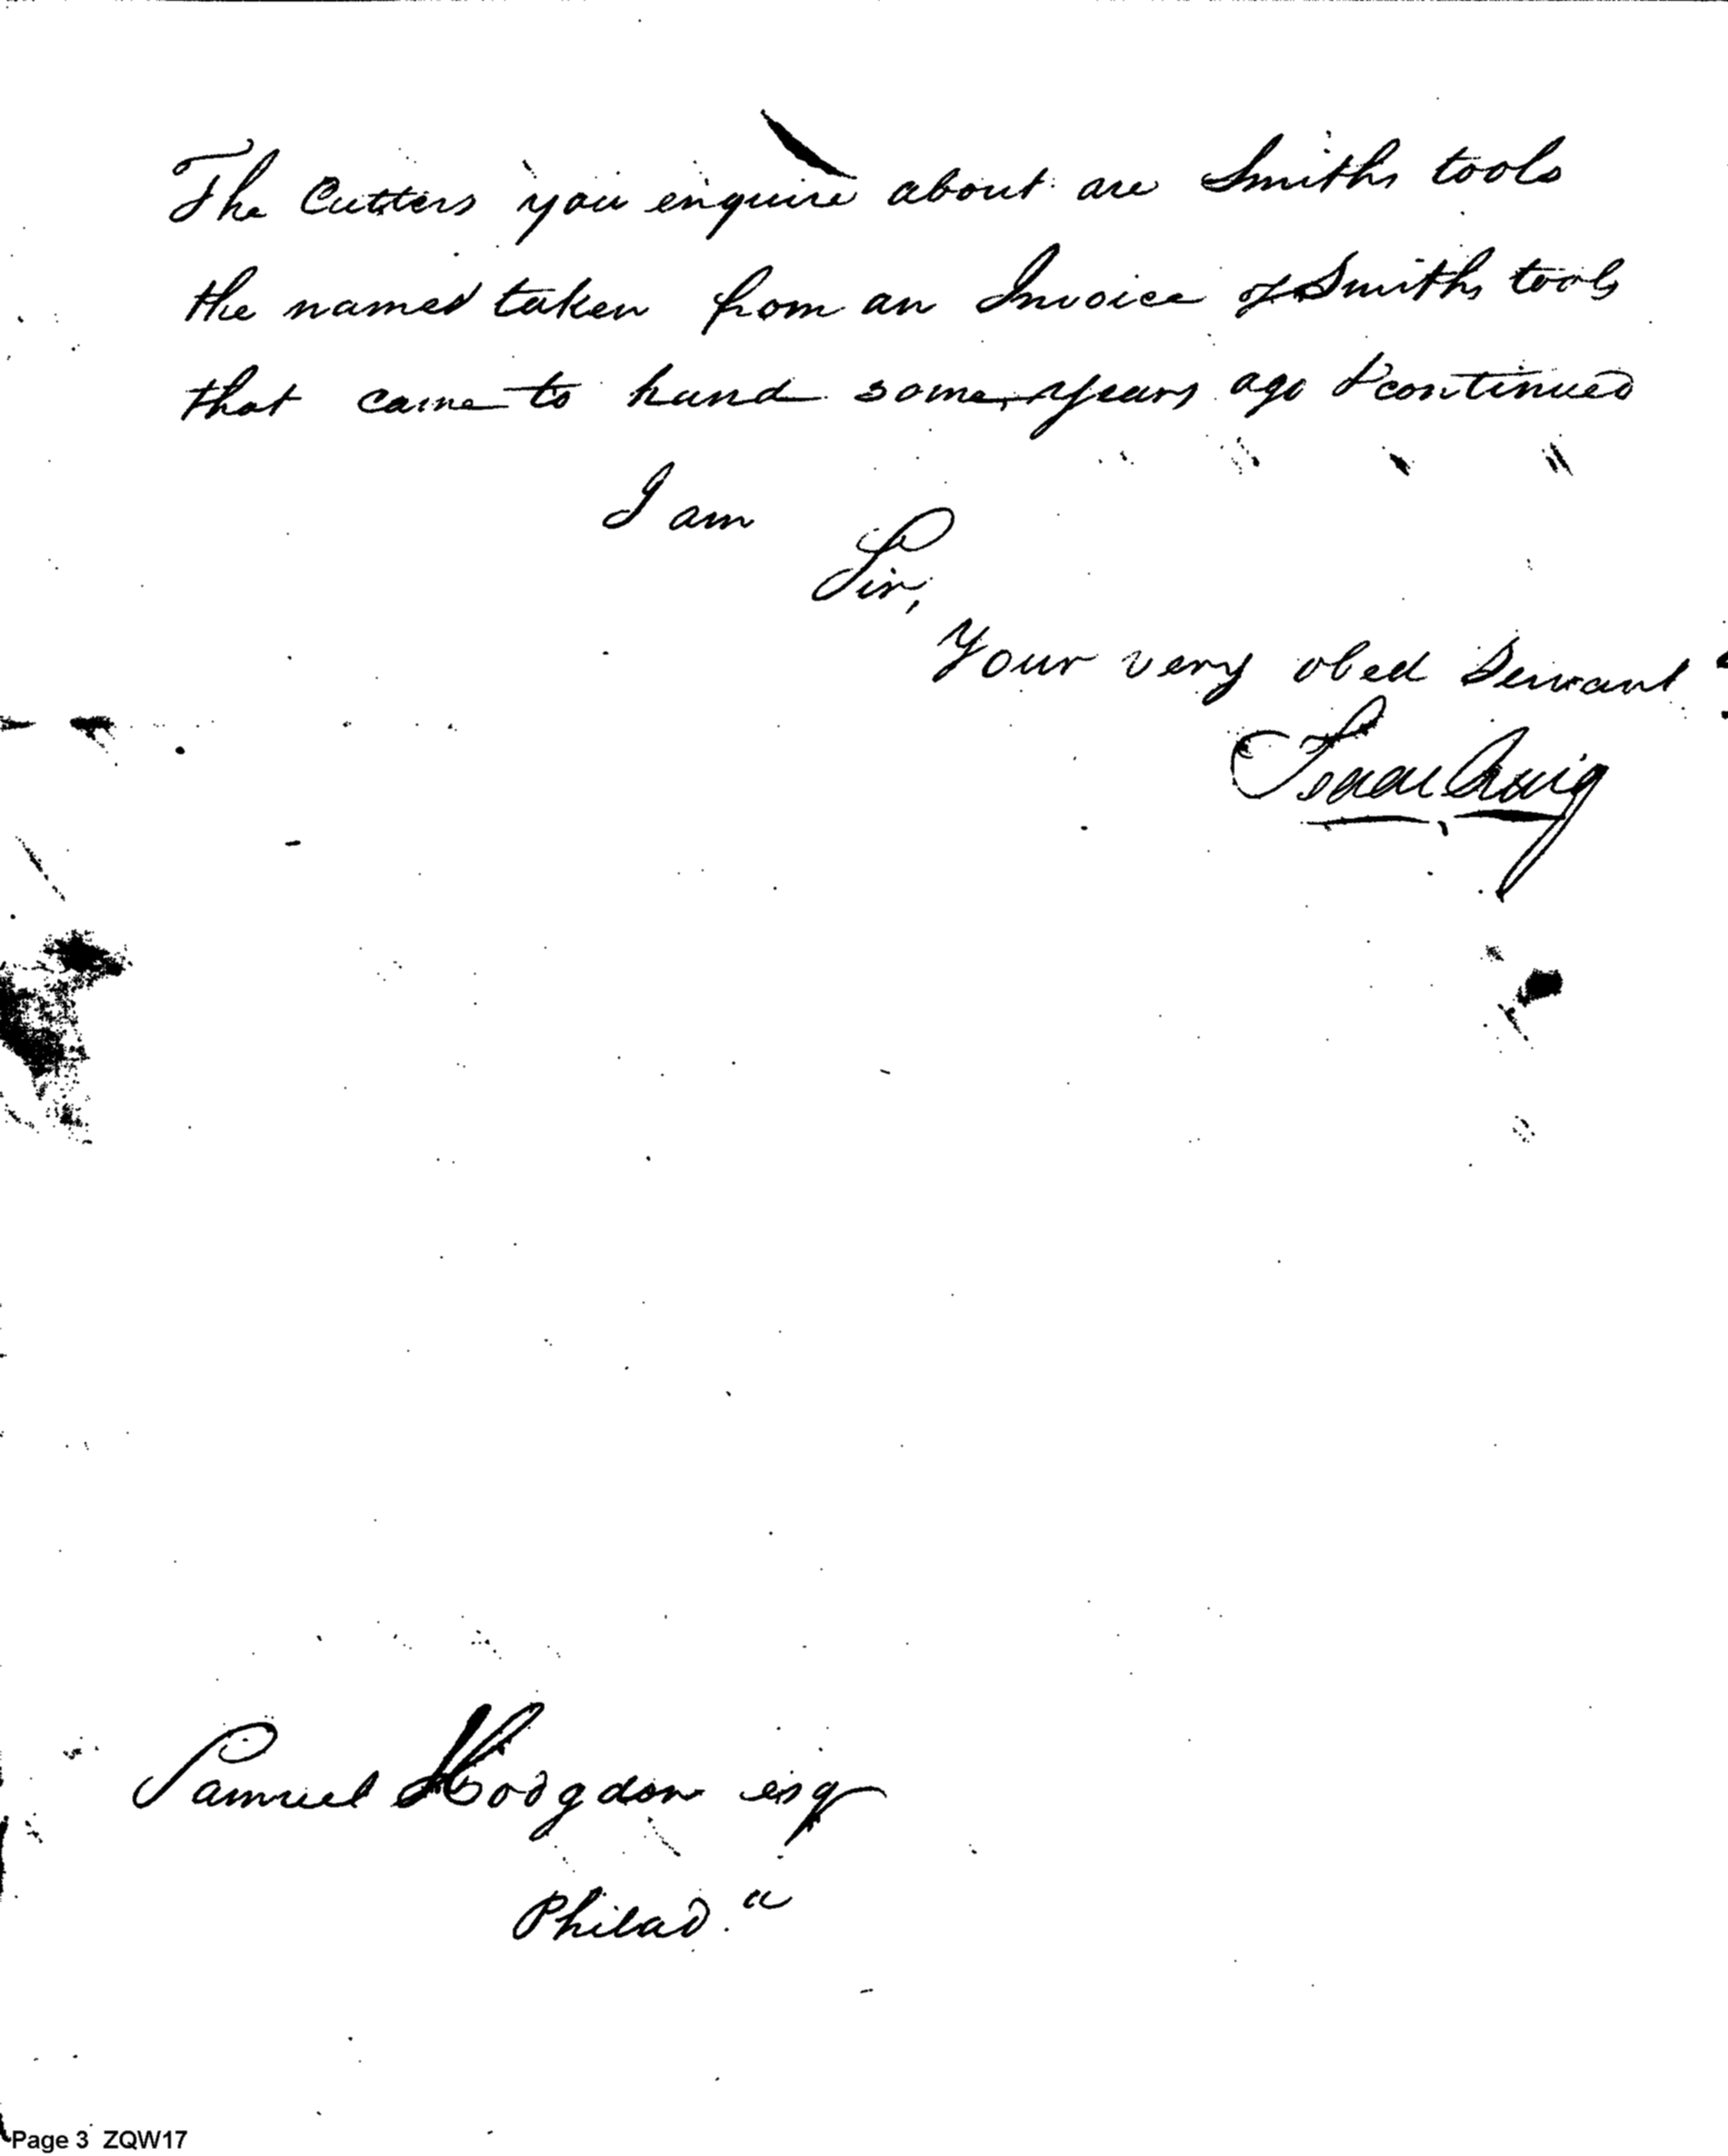 The Cutters you enquire about are Smiths tools
the names taken from an Invoice of Smiths tools
that came to hand some years ago & continued
I am
Sir,
Your very obed Servant
Isaac Craig
Samuel Hodgdon esq
Philad.a
Page 3 ZQW17